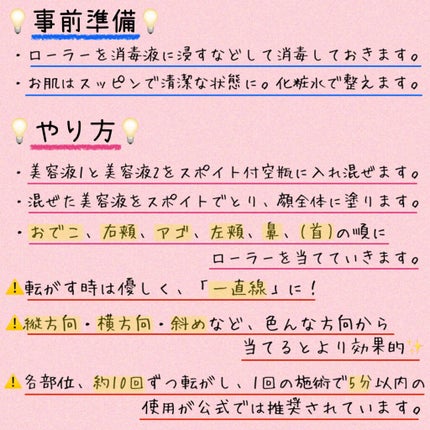 💡事前準備💡
・ローラーを消毒液に浸すなどして消毒しておきます。
・お肌はスッピンで清潔な状態に。化粧水で整えます。
💡やり方💡
・美容液1と美容液2をスポイト付空瓶に入れ混ぜます。
・混ぜた美容液をスポイトでとり、顔全体に塗ります。
・おでこ、右頬、アゴ、左頬、鼻、(首)の順に
ローラーを当てていきます。
⚠️転がす時は優しく、「一直線」に！
⚠️縦方向・横方向・斜めなど、色んな方向から
当てるとより効果的✨
⚠️各部位、約10回ずつ転がし、1回の施術で5分以内の
使用が公式では推奨されています。